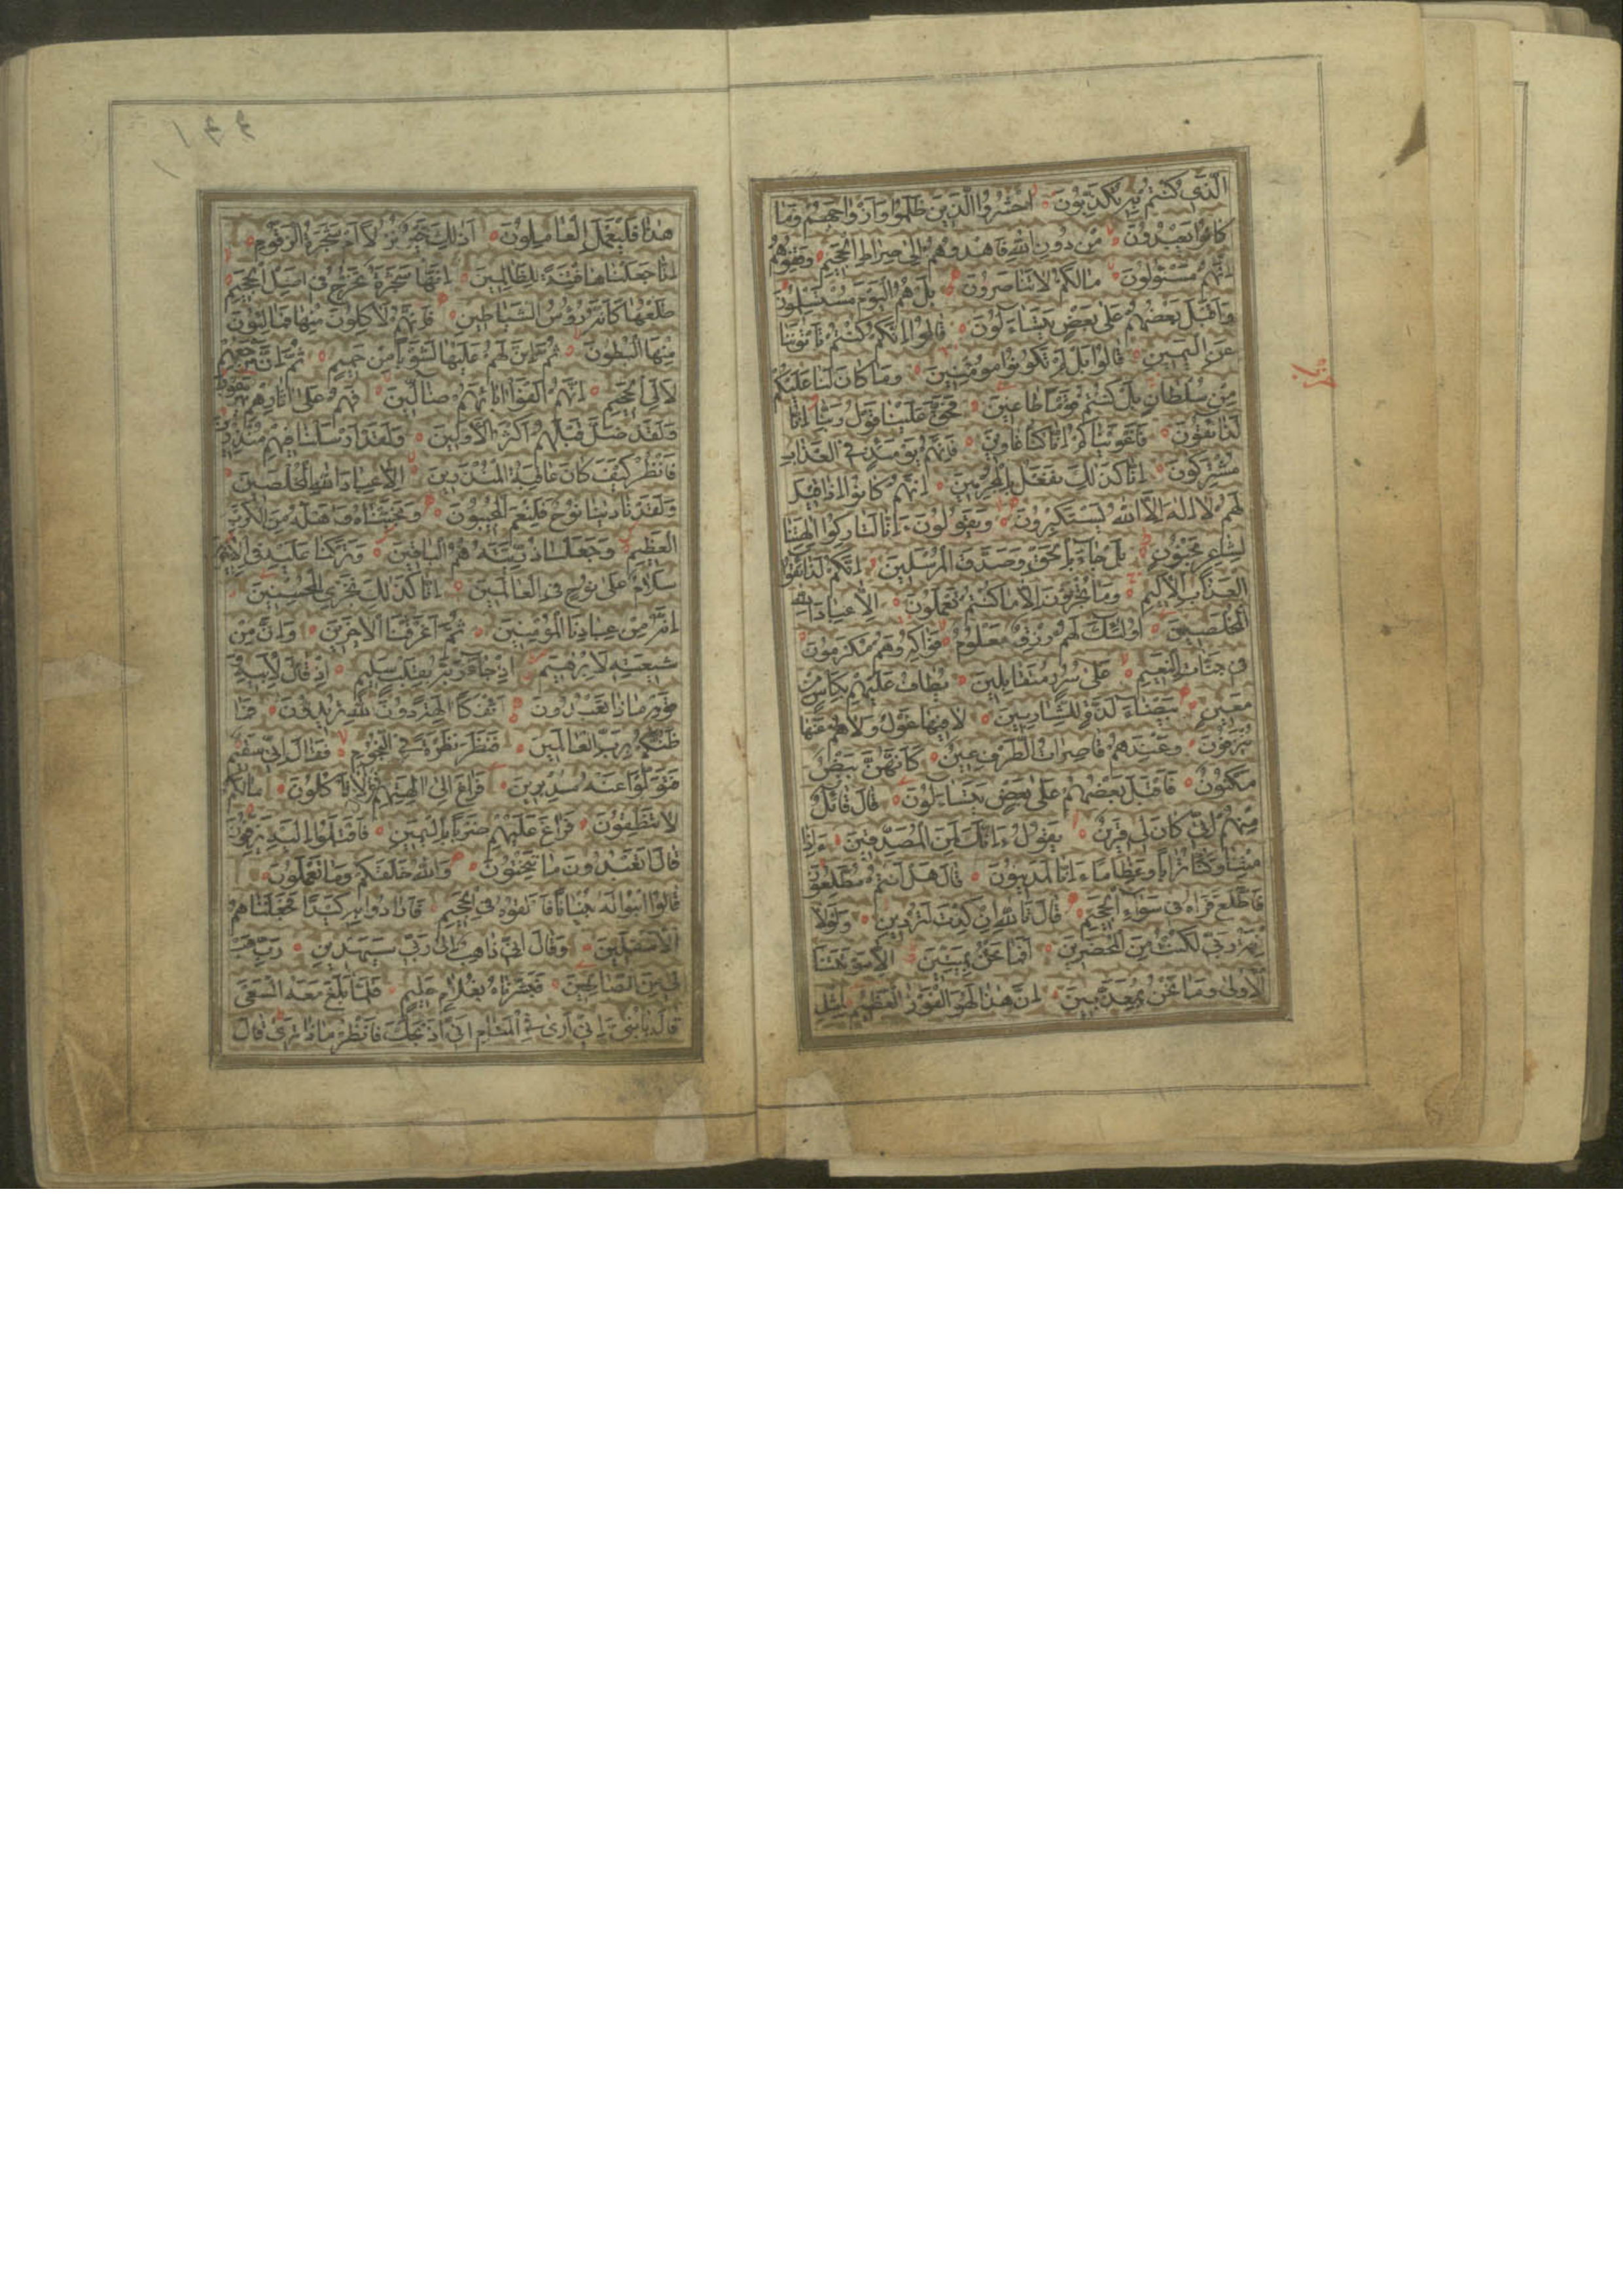 الَّذِي كُنْتُمْ بِهِ تُكَذِّبُونَ احْشُرُوا الَّذِينَ ظَلَمُوا وَاَزْوَاجَهُمْ وَمَا
كَانُوا يَعْبُدُونَ مِنْ دُونِ اللهِ فَاهْدُوهُمْ اِلٰى صِرَاطِ الْجَحِيمِ وَقِفُوهُمْ
اِنَّهُمْ مَسْئُولُونَ مَالَكُمْ لَا تَنَاصَرُونَ بَلْ هُمُ الْيَوْمَ مُسْتَسْلِمُونَ
وَاَقْبَلَ بَعْضُهُمْ عَلٰى بَعْضٍ يَتَسَاءَلُونَ قَالُوا اِنَّكُمْ كُنْتُمْ تَأْتُونَنَا
عَنِ الْيَمِينِ قَالُوا بَلْ لَمْ تَكُونُوا مُؤْمِنِينَ وَمَا كَانَ لَنَا عَلَيْكُمْ
مِنْ سُلْطَانٍ بَلْ كُنْتُمْ قَوْمًا طَاغِينَ فَحَقَّ عَلَيْنَا قَوْلُ رَبِّنَا اِنَّا
لَذَائِقُونَ فَاَغْوَيْنَاكُمْ اِنَّا كُنَّا غَاوِينَ فَاِنَّهُمْ يَوْمَئِذٍ فِي الْعَذَابِ
مُشْتَرِكُونَ اِنَّا كَذٰلِكَ نَفْعَلُ بِالْمُجْرِمِينَ اِنَّهُمْ كَانُوا اِذَا قِيلَ
لَهُمْ لَا اِلٰهَ اِلَّا اللهُ يَسْتَكْبِرُونَ وَيَقُولُونَ ءَاِنَّا لَتَارِكُوا اٰلِهَتِنَا
لِشَاعِرٍ مَجْنُونٍ بَلْ جَاءَ بِالْحَقِّ وَصَدَّقَ الْمُرْسَلِينَ اِنَّكُمْ لَذَائِقُوا
الْعَذَابِ الْاَلِيمِ وَمَا تُجْزَوْنَ اِلَّا مَا كُنْتُمْ تَعْمَلُونَ اِلَّا عِبَادَ اللهِ
الْمُخْلَصِينَ اُولٰئِكَ لَهُمْ رِزْقٌ مَعْلُومٌ فَوَاكِهُ وَهُمْ مُكْرَمُونَ
فِي جَنَّاتِ النَّعِيمِ عَلٰى سُرُرٍ مُتَقَابِلِينَ يُطَافُ عَلَيْهِمْ بِكَأْسٍ مِنْ
مَعِينٍ بَيْضَاءَ لَذَّةٍ لِلشَّارِبِينَ لَا فِيهَا غَوْلٌ وَلَا هُمْ عَنْهَا
يُنْزَفُونَ وَعِنْدَهُمْ قَاصِرَاتُ الطَّرْفِ عِينٌ كَاَنَّهُنَّ بَيْضٌ
مَكْنُونٌ فَاَقْبَلَ بَعْضُهُمْ عَلٰى بَعْضٍ يَتَسَاءَلُونَ قَالَ قَائِلٌ
مِنْهُمْ اِنِّي كَانَ لِي قَرِينٌ يَقُولُ ءَاِنَّكَ لَمِنَ الْمُصَدِّقِينَ ءَاِذَا
مِتْنَا وَكُنَّا تُرَابًا وَعِظَامًا ءَاِنَّا لَمَدِينُونَ قَالَ هَلْ اَنْتُمْ مُطَّلِعُونَ
فَاطَّلَعَ فَرَاٰهُ فِي سَوَاءِ الْجَحِيمِ قَالَ تَاللهِ اِنْ كِدْتَ لَتُرْدِينِ وَلَوْلَا
نِعْمَةُ رَبِّي لَكُنْتُ مِنَ الْمُحْضَرِينَ اَفَمَا نَحْنُ بِمَيِّتِينَ اِلَّا مَوْتَتَنَا
الْاُولٰى وَمَا نَحْنُ بِمُعَذَّبِينَ اِنَّ هٰذَا لَهُوَ الْفَوْزُ الْعَظِيمُ لِمِثْلِ
هٰذَا فَلْيَعْمَلِ الْعَامِلُونَ اَذٰلِكَ خَيْرٌ نُزُلًا اَمْ شَجَرَةُ الزَّقُّومِ
اِنَّا جَعَلْنَاهَا فِتْنَةً لِلظَّالِمِينَ اِنَّهَا شَجَرَةٌ تَخْرُجُ فِي اَصْلِ الْجَحِيمِ
طَلْعُهَا كَاَنَّهُ رُؤُسُ الشَّيَاطِينِ فَاِنَّهُمْ لَاٰكِلُونَ مِنْهَا فَمَالِئُونَ
مِنْهَا الْبُطُونَ ثُمَّ اِنَّ لَهُمْ عَلَيْهَا لَشَوْبًا مِنْ حَمِيمٍ ثُمَّ اِنَّ مَرْجِعَهُمْ
لَاِلَى الْجَحِيمِ اِنَّهُمْ اَلْفَوْا اٰبَائَهُمْ ضَالِّينَ فَهُمْ عَلٰى اٰثَارِهِمْ يُهْرَعُونَ
وَلَقَدْ ضَلَّ قَبْلَهُمْ اَكْثَرُ الْاَوَّلِينَ وَلَقَدْ اَرْسَلْنَا فِيهِمْ مُنْذِرِينَ
فَانْظُرْ كَيْفَ كَانَ عَاقِبَةُ الْمُنْذَرِينَ اِلَّا عِبَادَ اللهِ الْمُخْلَصِينَ
وَلَقَدْ نَادٰينَا نُوحٌ فَلَنِعْمَ الْمُجِيبُونَ وَنَجَّيْنَاهُ وَاَهْلَهُ مِنَ الْكَرْبِ
الْعَظِيمِ وَجَعَلْنَا ذُرِّيَّتَهُ هُمُ الْبَاقِينَ وَتَرَكْنَا عَلَيْهِ فِي الْاٰخِرِينَ
سَلَامٌ عَلٰى نُوحٍ فِي الْعَالَمِينَ اِنَّا كَذٰلِكَ نَجْزِي الْمُحْسِنِينَ
اِنَّهُ مِنْ عِبَادِنَا الْمُؤْمِنِينَ ثُمَّ اَغْرَقْنَا الْاٰخَرِينَ وَاِنَّ مِنْ
شِيعَتِهِ لَاِبْرٰهِيمَ اِذْ جَاءَ رَبَّهُ بِقَلْبٍ سَلِيمٍ اِذْ قَالَ لِاَبِيهِ وَ
قَوْمِهِ مَاذَا تَعْبُدُونَ اَئِفْكًا اٰلِهَةً دُونَ اللهِ تُرِيدُونَ فَمَا
ظَنُّكُمْ بِرَبِّ الْعَالَمِينَ فَنَظَرَ نَظْرَةً فِي النُّجُومِ فَقَالَ اِنِّي سَقِيمٌ
فَتَوَلَّوْا عَنْهُ مُدْبِرِينَ فَرَاغَ اِلٰى اٰلِهَتِهِمْ فَقَالَ اَلَا تَأْكُلُونَ مَالَكُمْ
لَا تَنْطِقُونَ فَرَاغَ عَلَيْهِمْ ضَرْبًا بِالْيَمِينِ فَاَقْبَلُوا اِلَيْهِ يَزِفُّونَ
قَالَ اَتَعْبُدُونَ مَا تَنْحِتُونَ وَاللهُ خَلَقَكُمْ وَمَا تَعْمَلُونَ
قَالُوا ابْنُوا لَهُ بُنْيَانًا فَاَلْقُوهُ فِي الْجَحِيمِ فَاَرَادُوا بِهِ كَيْدًا فَجَعَلْنَاهُمُ
الْاَسْفَلِينَ وَقَالَ اِنِّي ذَاهِبٌ اِلٰى رَبِّي سَيَهْدِينِ رَبِّ هَبْ
لِي مِنَ الصَّالِحِينَ فَبَشَّرْنَاهُ بِغُلَامٍ حَلِيمٍ فَلَمَّا بَلَغَ مَعَهُ السَّعْيَ
قَالَ يَا بُنَيَّ اِنِّي اَرٰى فِي الْمَنَامِ اَنِّي اَذْبَحُكَ فَانْظُرْ مَاذَا تَرٰى قَالَ